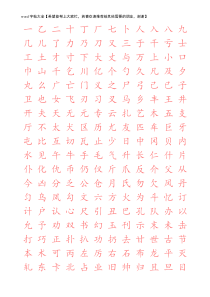 word字帖大全
一 乙 二 十 丁 厂 七 卜 人 入 八 九
几 儿 了 力 乃 刀 又 三 于 干 亏 士
土 工 才 寸 下 大 丈 与 万 上 小 口
巾 山 千 乞 川 亿 个 勺 久 凡 及 夕
丸 么 广 亡 门 义 之 尸 弓 己 已 子
卫 也 女 飞 刃 习 叉 马 乡 丰 王 井
开 夫 天 无 元 专 云 扎 艺 木 五 支
厅 不 太 犬 区 历 尤 友 匹 车 巨 牙
屯 比 互 切 瓦 止 少 日 中 冈 贝 内
水 见 午 牛 手 毛 气 升 长 仁 什 片
仆 化 仇 币 仍 仅 斤 爪 反 介 父 从
今 凶 分 乏 公 仓 月 氏 勿 欠 风 丹
匀 乌 凤 勾 文 六 方 火 为 斗 忆 订
计 户 认 心 尺 引 丑 巴 孔 队 办 以
允 予 劝 双 书 幻 玉 刊 示 末 未 击
打 巧 正 扑 扒 功 扔 去 甘 世 古 节
本 术 可 丙 左 厉 右 石 布 龙 平 灭
轧 东 卡 北 占 业 旧 帅 归 且 旦 目